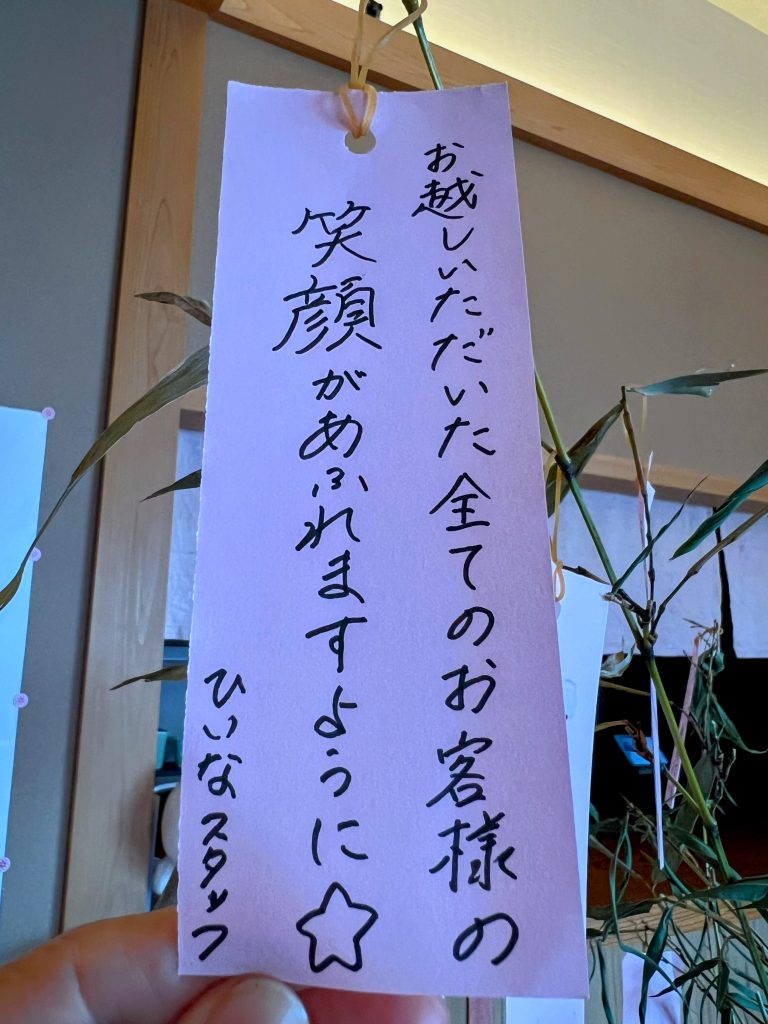 お越しいただいた全てのお客様の
笑顔があふれますように☆
ひいなスタッフ